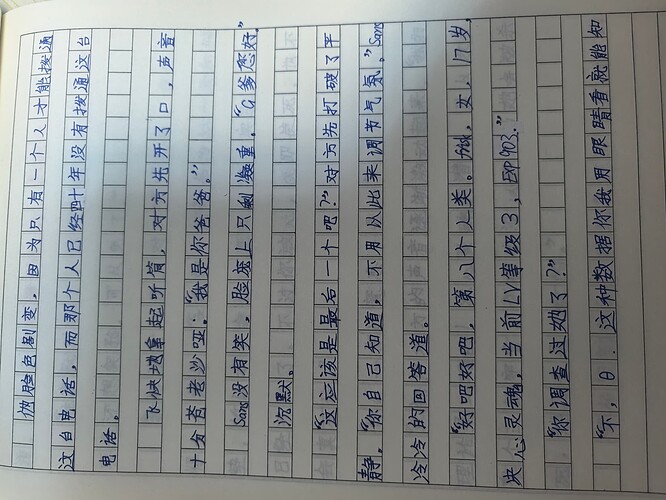 他脸色剧变，因为只有一个人才能拨通
这台电话，而那个人已经四十年没有拨通这台
电话。
飞快地拿起听筒，对方先开了口，声音
十分苍老沙哑：“我是你爸爸。”
Sans没有笑，脸庞上只剩凝重。“G爹您好。”
沉默。
“这应该是最后一个吧？”对方先打破了平
静。“你自己知道，不用以此来调节气氛。”Sans
冷冷的回答道。
“好吧好吧，第八个人类。frisk，女，17岁，
决心灵魂，当前LV等级3，EXP903。”
“你调查过她了？”
“不，θ．这种数据你我用眼睛看就能知